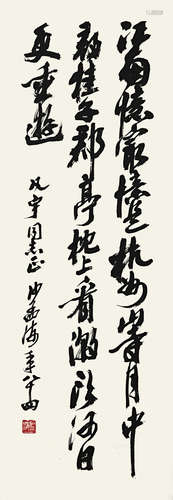 江南憶最憶是杭州山寺月中
尋桂子郡亭枕上看潮頭何日
更重遊
同志正 沙孟海年八十四